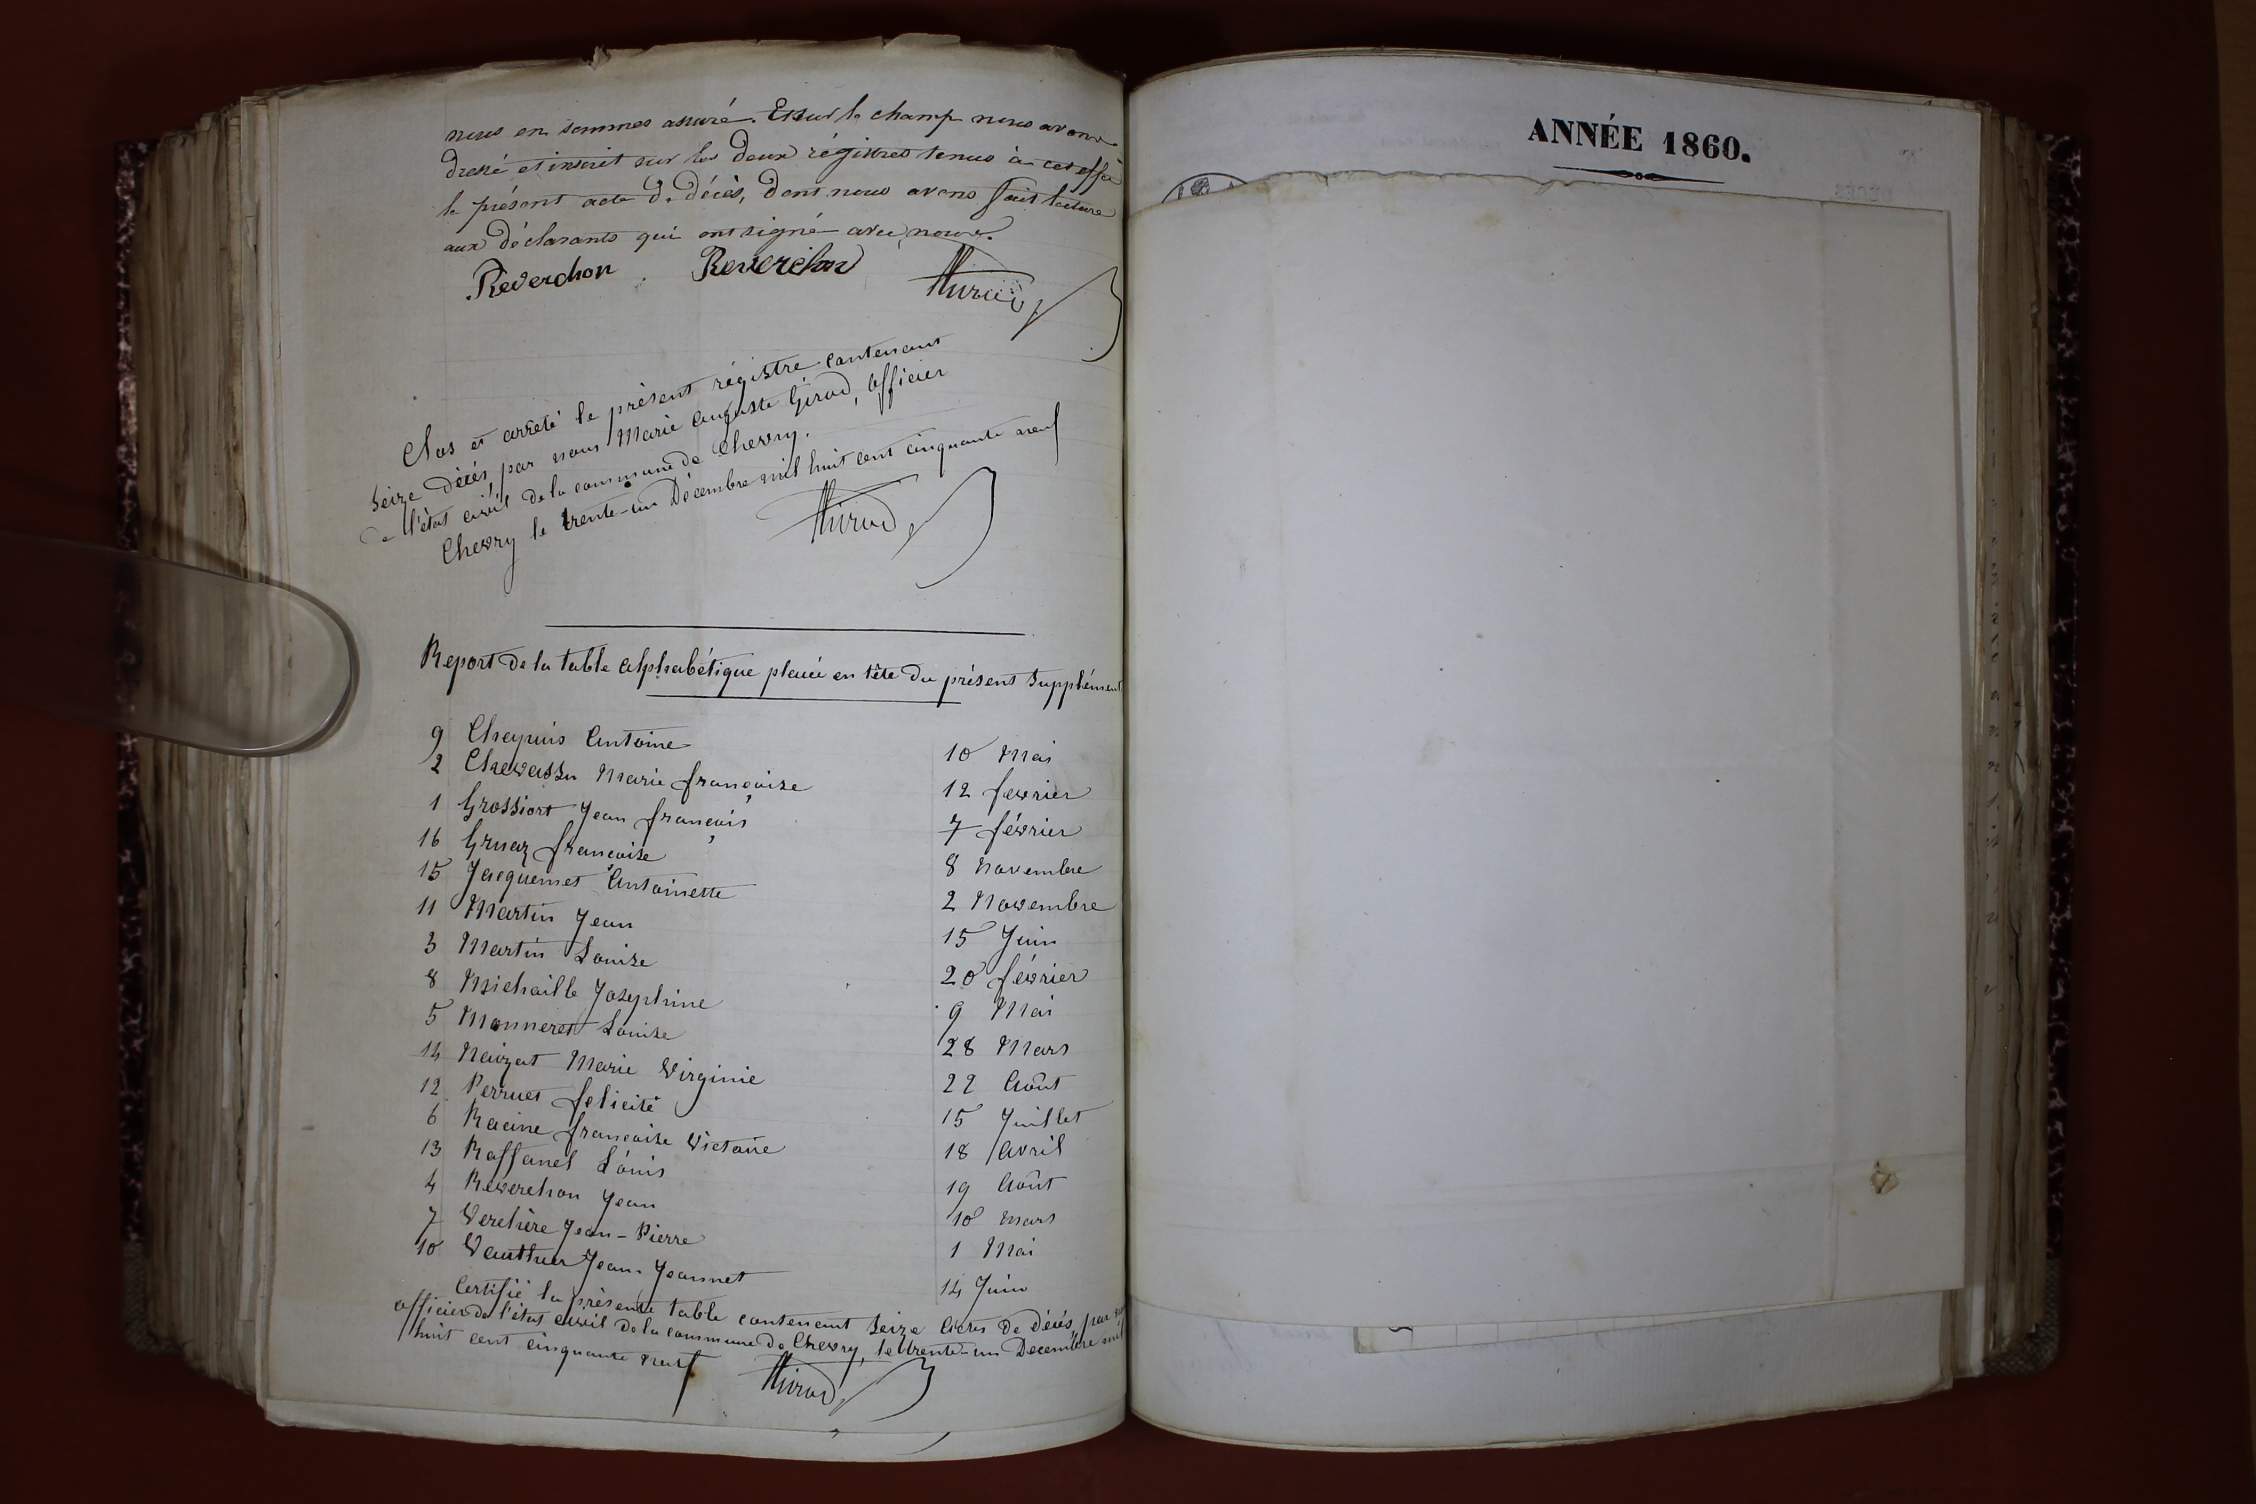 nous en sommes assuré. Et sur le champ nous avons
dressé et inscrit sur les deux régistres tenus à cet effet
le présent acte de décès, dont nous avons fait lecture
aux déclarants qui ont signé avec nous.
Reverchon Reverchon Girod
Clos et arrêté le présent régistre contenant
seize décés, par nous Marie Auguste Girod, officier
de l'état civil de la commune de Chevry.
Chevry le trente-un Décembre mil huit cent cinquante neuf
Girod
Report de la table alphabétique placée en tête du présent Supplément
9 Chapuis Antoine 10 Mai
2 Chevassu Marie françoise 12 fevrier
1 Grossiort Jean françois 7 février
16 Gruaz francoise 8 Novembre
15 Jacquemet Antoinette 2 Novembre
11 Martin Jean 15 Juin
3 Martin Louise 20 février
8 Michaille Josephine 9 Mai
5 Monneret Louise 28 Mars
14 Naizat Marie Virginie 22 Août
12 Perruet felicité 15 Juillet
6 Racine francoise Victoire 18 Avril
13 Raffanel Louis 19 Août
4 Reverchon Jean 10 mars
7 Verchère Jean-Pierre 1 Mai
10 Vauthier Jean Jeannet 14 Juin
Certifié la présente table contenant seize actes de décés, par
officier de l'état civil de la commune de Chevry, le trente-un Decembre mil
huit cent cinquante neuf
Girod
ANNÉE 1860.